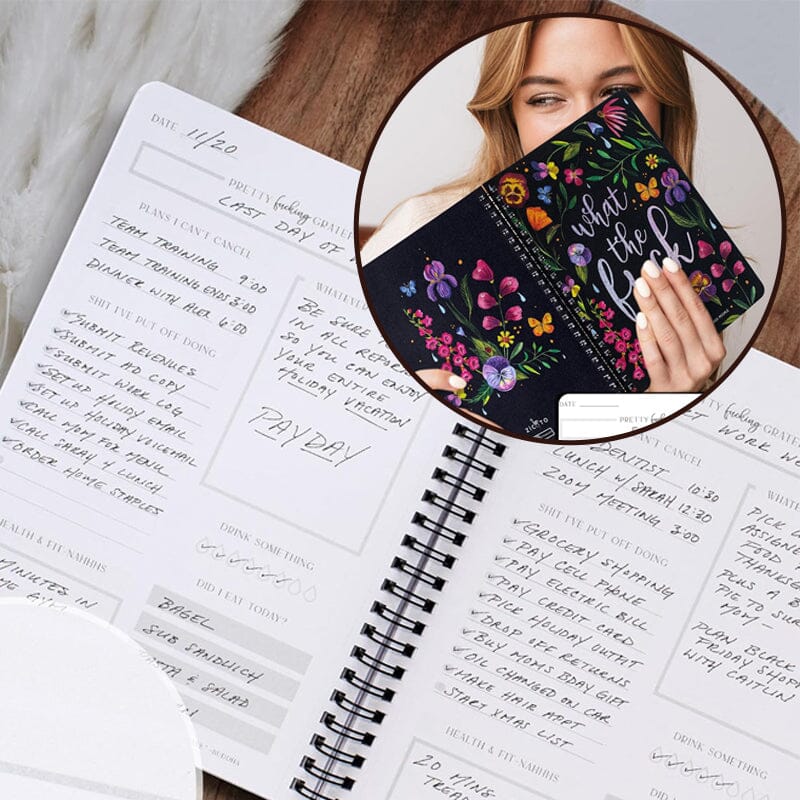 DATE 11/20
PRETTY fucking GRATEFUL
LAST DAY OF
PLANS I CAN'T CANCEL
TEAM TRAINING 9:00
TEAM TRAINING ENDS 3:00
DINNER WITH ALEX 6:00
SHIT I'VE PUT OFF DOING
SUBMIT REVENUES
SUBMIT AD COPY
SUBMIT WORK LOG
SETUP HOLIDY EMAIL
SET UP HOLIDAY VOICEMAIL
CALL MOM FOR MENU
CALL SARAH 4 LUNCH
ORDER HOME STAPLES
HEALTH & FIT-NAHHHS
MINUTES IN
BE SURE
IN ALL REPOR
SO YOU CAN ENJOY
YOUR ENTIRE
HOLIDAY VACATION
PAYDAY
DRINK SOMETHING
DID I EAT TODAY?
BAGEL
SUB SANDWICH
& SALAD
-BUDDHA
what
the
fuck
DATE
PRETTY
fucking GRATEF
WORK
CAN'T CANCEL
DENTIST 10:30
LUNCH W/ SARAH 12:30
ZOOM MEETING 3:00
SHIT I'VE PUT OFF DOING
GROCERY SHOPPING
PAY CELL PHONE
PAY ELECTRIC BILL
PAY CREDIT CARD
PICK HOLIDAY OUTFIT
DROP OFF RETURNS
BUY MOMS BDAY GIFT
OIL CHANGED ON CAR
MAKE HAIR APPT
START XMAS LIST
HEALTH & FIT-NAHHHS
20 MINS
PICK
ASSIGNE
FOOD
THANKSG
PLUS A B
PIE TO SUR
MOM-
PLAN BLACK
FRIDAY SHOPP
WITH CAITLIN
DRINK SOMETHING